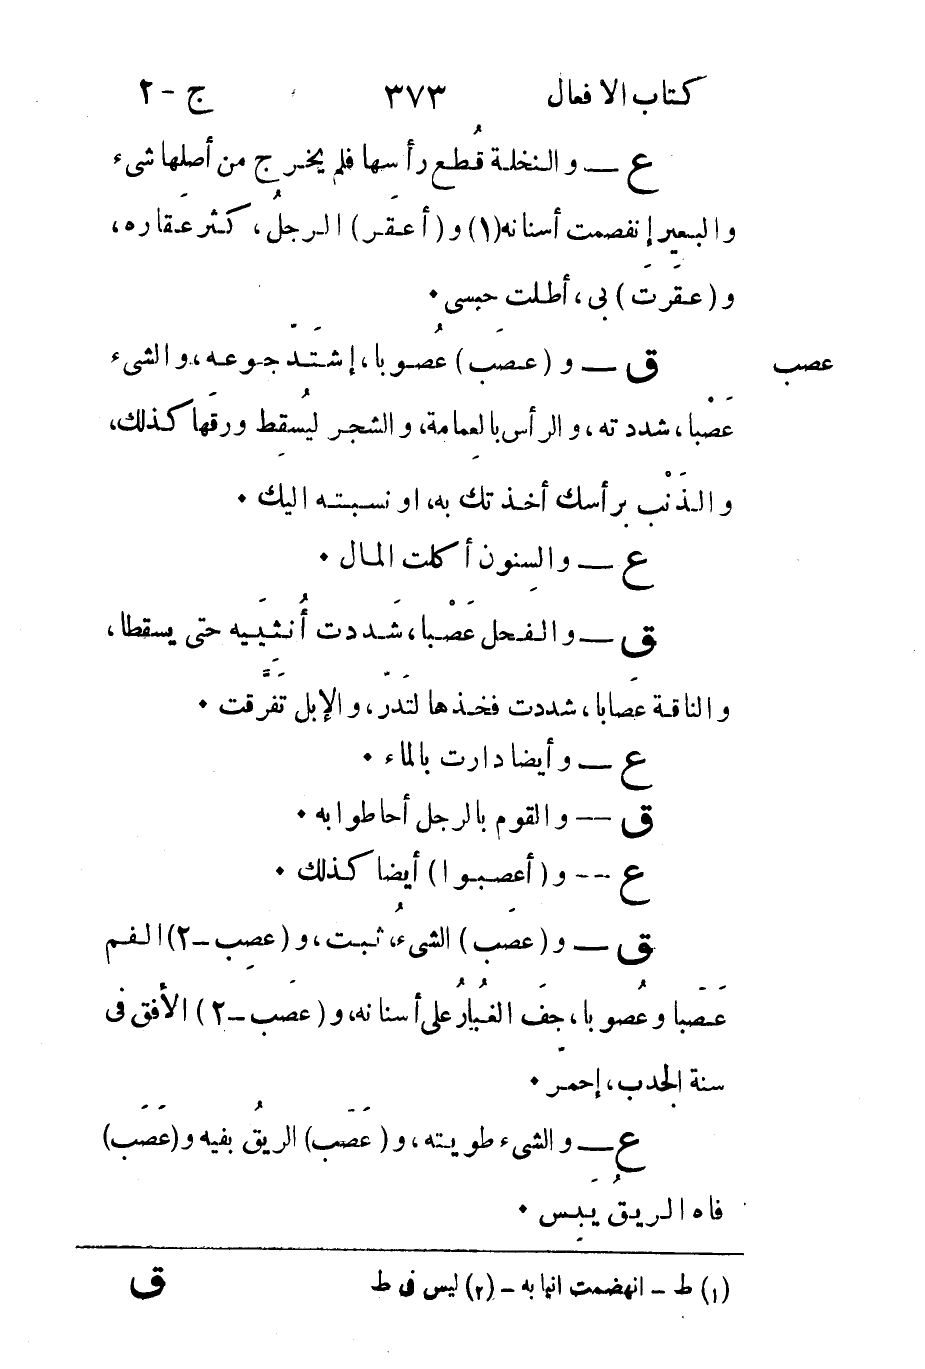 كتاب الافعال ٣٧٣ ج - ٢
ع — والنخلة قُطع رأسها فلم يخرج من أصلها شىء
والبعير إنفصمت أسنانه(١) و(أعقَر) الرجلُ، كثر عَقاره،
و(عقَرتَ) بى، أطلت حبسى ٠
عصب
ق — و (عصَب) عُصوبا، إشتَدّ جوعه، والشىء
عَصْبا، شددته، والرأس بالعمامة، والشجر ليُسقط ورقَها كذلك،
والذَنْب برأسك أخذتك به، او نسبته اليك ٠
ع — والسِنون أكلت المال ٠
ق — والفحل عَصْبا، شَددت أُنثيَيه حتى يسقطا،
والناقة عصَابا، شددت فخذها لتَدرّ، والإبل تفَرَّقت ٠
ع — وأيضا دارت بالماء ٠
ق -- والقوم بالرجل أحاطوا به ٠
ع -- و(أعصبوا) أيضا كذلك ٠
ق — و (عصَب) الشىءُ، ثبت، و(عصِب -٢) الفم
عَصَبا وعُصوبا، جَفّ الغُبارُ على أسنانه، و(عصَب -٢) الأُفق فى
سنة الجَدب، إحمرّ ٠
ع — والشىء طويته، و(عَصَب) الريقُ بفيه و(عَصَب)
فاه الريقُ يَبِس ٠
(١) ط - انهضمت انيابه - (٢) ليس فى ط
ق